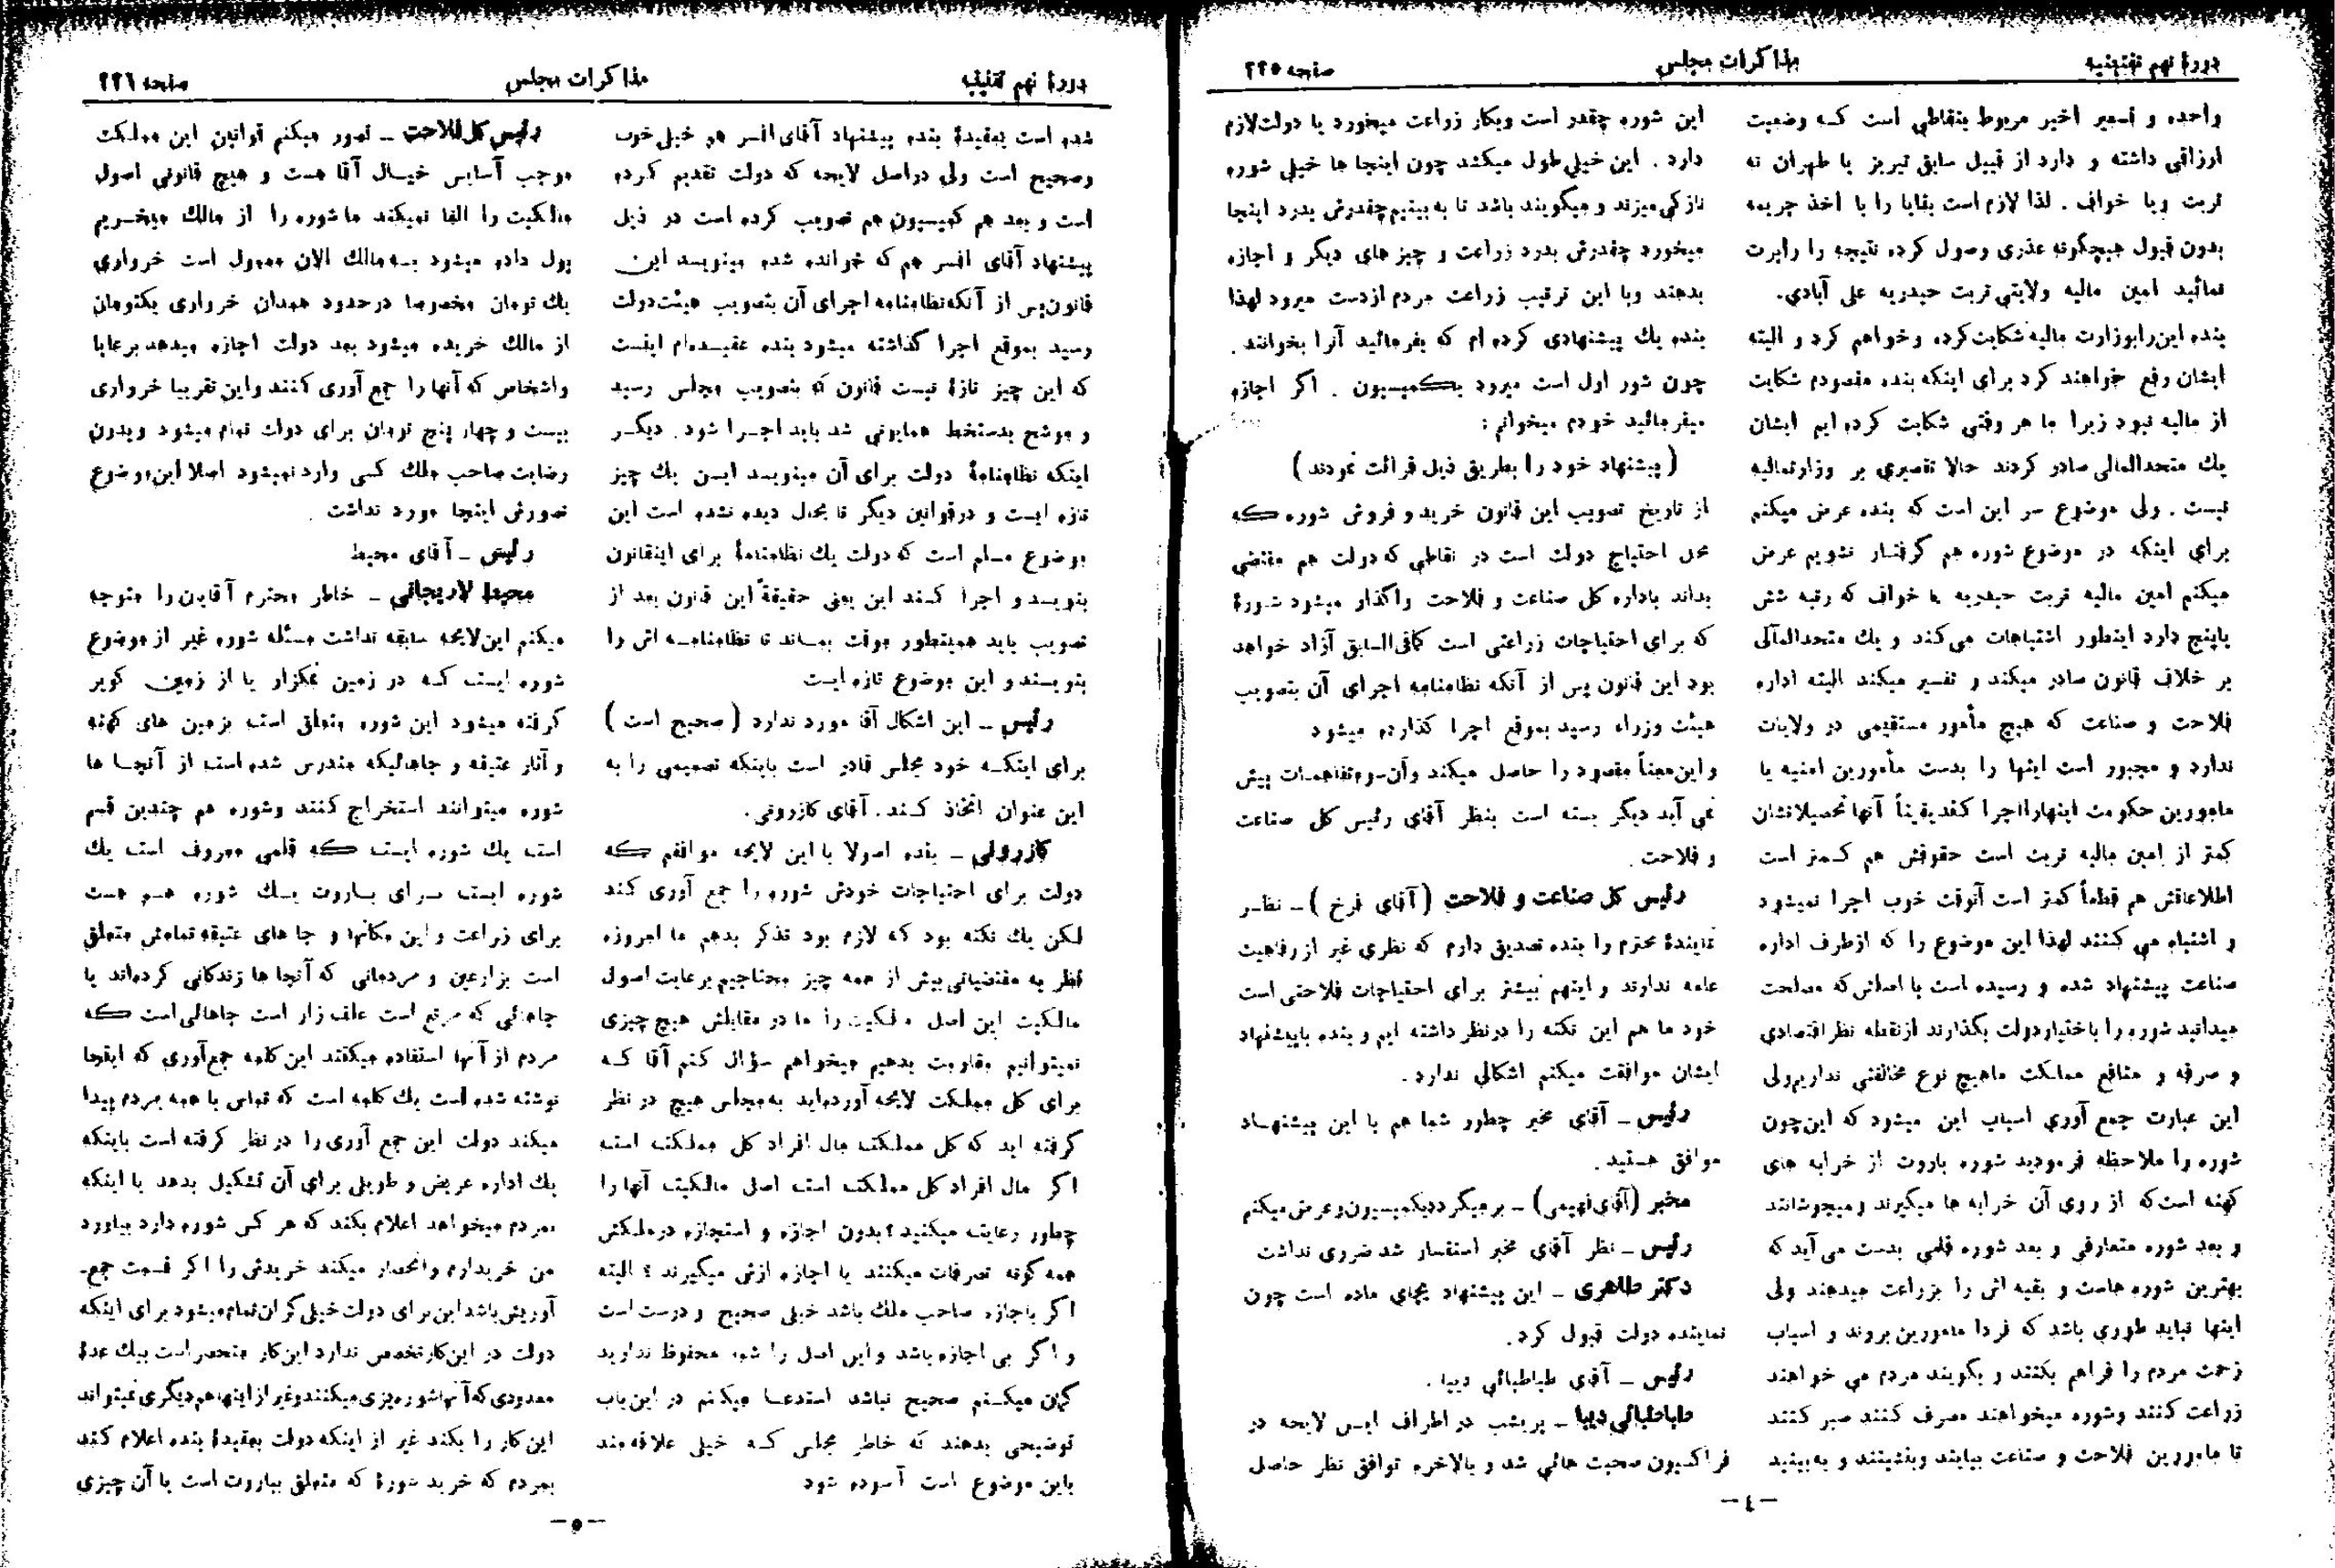 دورهٔ نهم تقنینیه
مذاکرات مجلس
صفحه ۲۲۵
واحده و تسعیر اخیر مربوط بنقاطی است که وضعیت
ارزاقی داشته و دارد از قبیل سابق تبریز یا طهران نه
تربت ویا خواف . لذا لازم است بقایا را با اخذ جریمه
بدون قبول هیچگونه عذری وصول کرده نتیجه را راپرت
نمائید امین مالیه ولایتی تربت حیدریه علی آبادی.
بنده این‌را بوزارت مالیه شکایت کرده و خواهم کرد و البته
ایشان رفع خواهند کرد برای اینکه بنده مقصودم شکایت
از مالیه نبود زیرا ما هر وقتی شکایت کرده‌ایم ایشان
یك متحدالمالی صادر کردند حالا تقصیری بر وزارتمالیه
نیست . ولی موضوع سر این است که بنده عرض میکنم
برای اینکه در موضوع شوره هم گرفتار نشویم عرض
میکنم امین مالیه تربت حیدریه یا خواف که رتبه شش
یاپنج دارد اینطور اشتباهات می‌کند و یك متحدالمالی
بر خلاف قانون صادر میکند و تفسیر میکند البته اداره
فلاحت و صناعت که هیچ مأمور مستقیمی در ولایات
ندارد و مجبور است اینها را بدست مأمورین امنیه یا
مامورین حکومت اینهارا اجرا کند یقیناً آنها تحصیلاتشان
کمتر از امین مالیه تربت است حقوقش هم کمتر است
اطلاعاتش هم قطعاً کمتر است آنوقت خوب اجرا نمیشود
و اشتباه می کنند لهذا این موضوع را که ازطرف اداره
صناعت پیشنهاد شده و رسیده است با اساس که مصلحت
میدانید شوره را باختیار دولت بگذارند ازنقطه نظر اقتصادی
و صرفه و منافع مملکت ماهیچ نوع مخالفتی نداریم ولی
این عبارت جمع آوری اسباب این میشود که این‌چون
شوره را ملاحظه فرمودید شوره باروت از خرابه های
کهنه است که از روی آن خرابه ها میگیرند و میجوشانند
و بعد شوره متعارفی و بعد شوره قلمی بدست می‌آید که
بهترین شوره هاست و بقیه اش را بزراعت میدهند ولی
اینها نباید طوری باشد که فردا مامورین بروند و اسباب
زحمت مردم را فراهم بکنند و بگویند مردم می خواهند
زراعت کنند وشوره میخواهند مصرف کنند صبر کنند
تا مامورین فلاحت و صناعت بیایند وبنشینند و به‌بینید
این شوره چقدر است وبکار زراعت میخورد یا دولت‌لازم
دارد . این خیلی طول میکشد چون اینجا ها خیلی شوره
نازکی میزند و میگویند باشد تا به بینیم چقدرش بدرد اینجا
میخورد چقدرش بدرد زراعت و چیز های دیگر و اجازه
بدهند وبا این ترتیب زراعت مردم ازدست میرود لهذا
بنده یك پیشنهادی کرده ام که بفرمائید آنرا بخوانند .
چون شور اول است میرود بکمیسیون . اگر اجازه
میفرمائید خودم میخوانم :
(پیشنهاد خود را بطریق ذیل قرائت نمودند)
از تاریخ تصویب این قانون خرید و فروش شوره که
محل احتیاج دولت است در نقاطی که دولت هم مقتضی
بداند باداره کل صناعت و فلاحت واگذار میشود شورهٔ
که برای احتیاجات زراعتی است کمافی‌السابق آزاد خواهد
بود این قانون پس از آنکه نظامنامه اجرای آن بتصویب
هیئت وزراء رسید بموقع اجرا گذارده میشود
و این‌معناً مقصود را حاصل میکند و آن‌سوءتفاهمات پیش
نمی آید دیگر بسته است بنظر آقای رئیس کل صناعت
و فلاحت .
رئیس کل صناعت و فلاحت (آقای فرخ) ـ نظر
نمایندهٔ محترم را بنده تصدیق دارم که نظری غیر از رفاهیت
عامه ندارند و اینهم بیشتر برای احتیاجات فلاحتی است
خود ما هم این نکته را درنظر داشته ایم و بنده باپیشنهاد
ایشان موافقت میکنم اشکالی ندارد .
رئیس ـ آقای مخبر چطور شما هم با این پیشنهاد
موافق هستید .
مخبر (آقای فهیمی) ـ بر میگردد بکمیسیون و عرض میکنم
رئیس ـ نظر آقای مخبر استفسار شد ضروری نداشت
دکتر طاهری ـ این پیشنهاد بجای ماده است چون
نماینده دولت قبول کرد.
رئیس ـ آقای طباطبائی دیبا .
طباطبائی دیبا ـ پریشب در اطراف این لایحه در
فراکسیون صحبت هائی شد و بالاخره توافق نظر حاصل
ـ ٤ ـ
دورهٔ نهم تقنینیه
مذاکرات مجلس
صفحه ۲۲٦
شده است بعقیدهٔ بنده پیشنهاد آقای افسر هم خیلی خوب
وصحیح است ولی دراصل لایحه که دولت تقدیم کرده
است و بعد هم کمیسیون هم تصویب کرده است در ذیل
پیشنهاد آقای افسر هم که خوانده شده مینویسد این
قانون‌پس از آنکه نظامنامه اجرای آن بتصویب هیئت‌دولت
رسید بموقع اجرا گذاشته میشود بنده عقیده‌ام اینست
که این چیز تازهٔ نیست قانون که بتصویب مجلس رسید
و موشح بدستخط همایونی شد باید اجرا شود. دیگر
اینکه نظامنامهٔ دولت برای آن مینویسد این یك چیز
تازه ایست و درقوانین دیگر تا بحال دیده نشده است این
موضوع مسلم است که دولت یك نظامنامهٔ برای اینقانون
بنویسد و اجرا کند این یعنی حقیقةً این قانون بعد از
تصویب باید همینطور موقت بماند تا نظامنامه اش را
بنویسند و این موضوع تازه ایست
رئیس ـ این اشکال آقا مورد ندارد (صحیح است)
برای اینکه خود مجلس قادر است باینکه تصمیمی را به
این عنوان اتخاذ کند. آقای کازرونی.
کازرونی ـ بنده اصولا با این لایحه موافقم که
دولت برای احتیاجات خودش شوره را جمع آوری کند
لکن یك نکته بود که لازم بود تذکر بدهم ما امروزه
نظر به مقتضیاتی بیش از همه چیز محتاجیم برعایت اصول
مالکیت این اصل مالکیت را ما در مقابلش هیچ چیزی
نمیتوانیم مقاومت بدهیم میخواهم سؤال کنم آقا که
برای کل مملکت لایحه آورده‌اید به‌مجلس هیچ در نظر
گرفته اید که کل مملکت مال افراد کل مملکت است
اگر مال افراد کل مملکت است اصل مالکیت آنها را
چطور رعایت میکنید؟ بدون اجازه و استجازه درملکش
همه گونه تصرفات میکنند یا اجازه ازش میگیرند؟ البته
اگر باجازه صاحب ملك باشد خیلی صحیح و درست است
و اگر بی اجازه باشد و این اصل را شما محفوظ ندارید
گمان میکنم صحیح نباشد استدعا میکنم در این‌باب
توضیحی بدهند که خاطر مجلس که خیلی علاقه‌مند
باین موضوع است آسوده شود
رئیس کل فلاحت ـ تصور میکنم قوانین این مملکت
موجب آسایش خیال آقا هست و هیچ قانونی اصول
مالکیت را الغا نمیکند ما شوره را از مالك میخریم
پول داده میشود به‌مالك الان معمول است خرواری
یك تومان مخصوصا درحدود همدان خرواری یکتومان
از مالك خریده میشود بعد دولت اجازه میدهد برعایا
واشخاص که آنها را جمع آوری کنند و این تقریبا خرواری
بیست و چهار پنج تومان برای دولت تمام میشود وبدون
رضایت صاحب ملك کسی وارد نمیشود اصلا این‌موضوع
تصورش اینجا مورد نداشت .
رئیس ـ آقای محیط
محیط لاریجانی ـ خاطر محترم آقایان را متوجه
میکنم این‌لایحه سابقه نداشت مسئله شوره غیر از موضوع
شوره ایست که در زمین نمکزار یا از زمین کویر
گرفته میشود این شوره متعلق است بزمین های کهنه
و آثار عتیقه و جاهائیکه مندرس شده است از آنجا ها
شوره میتوانند استخراج کنند وشوره هم چندین قسم
است یك شوره ایست که قلمی معروف است یك
شوره ایست برای باروت یك شوره هم هست
برای زراعت و این مکانها و جا های عتیقه تمامش متعلق
است بزارعین و مردمانی که آنجا ها زندگانی کرده‌اند یا
جاهائی که مرتع است علف زار است جاهائی است که
مردم از آنها استفاده میکنند این کلمه جمع‌آوری که اینجا
نوشته شده است یك کلمه است که تماس با همه مردم پیدا
میکند دولت این جمع آوری را در نظر گرفته است باینکه
یك اداره عریض و طویلی برای آن تشکیل بدهد یا اینکه
بمردم میخواهد اعلام بکند که هر کس شوره دارد بیاورد
من خریدارم وانحصار میکند خریدش را اگر قسمت جمع‌ـ
آوریش باشد این‌برای دولت خیلی گران تمام میشود برای اینکه
دولت در این‌کار تخصص ندارد این‌کار منحصر است بیك عدهٔ
معدودی که آنها شوره‌پزی میکنند و غیر از اینها هم دیگری نمیتواند
این‌کار را بکند غیر از اینکه دولت بعقیدهٔ بنده اعلام کند
بمردم که خرید شورهٔ که متعلق بباروت است یا آن چیزی
ـ ٥ ـ